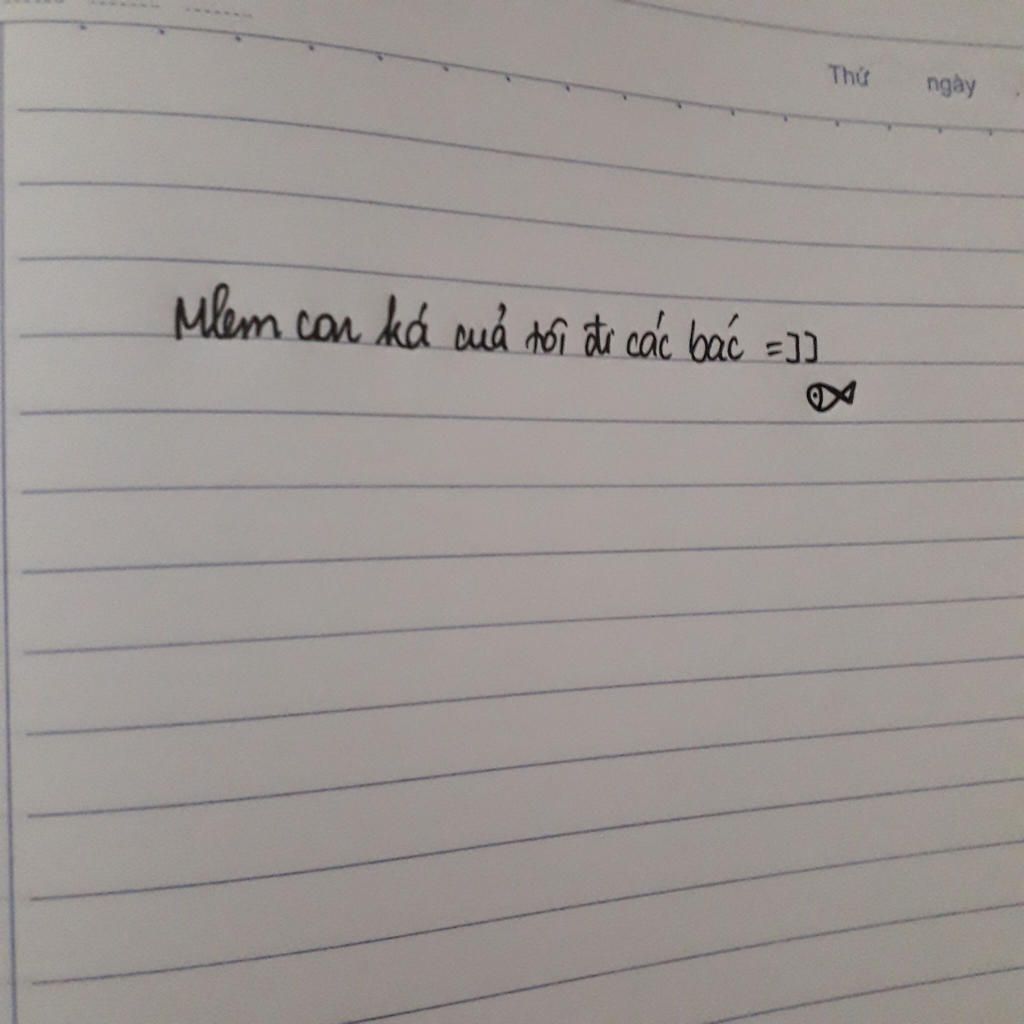 Thứ ngày
Mlem con ká cuả tôi đi các bác =]]